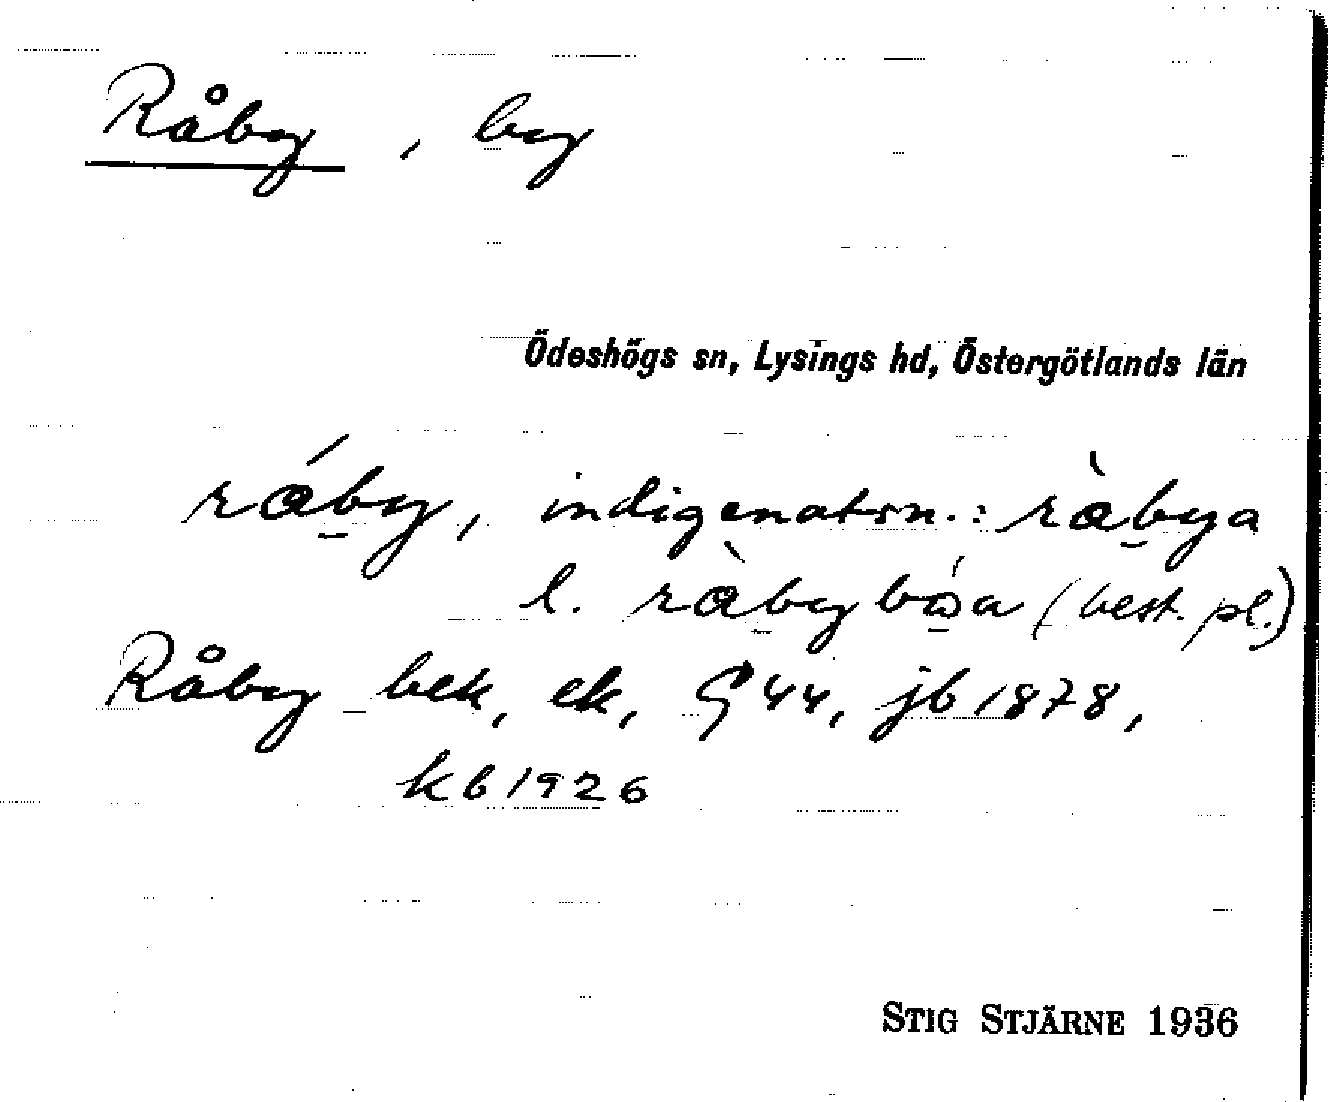 Råby, by
Ödeshögs sn, Lysings hd, Östergötlands län
ráby, indigenatsn.: ràbya
l. ràbybósa (best. pl.)
Råby bek, ek, G 44, jb 1878,
kb 1926
STIG STJÄRNE 1936